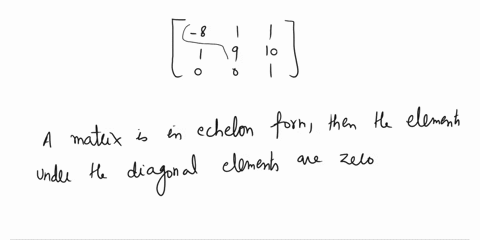 -8 1 1
1 9 10
0 0 1
A matrix is in echelon form, then the elements
under the diagonal elements are zero